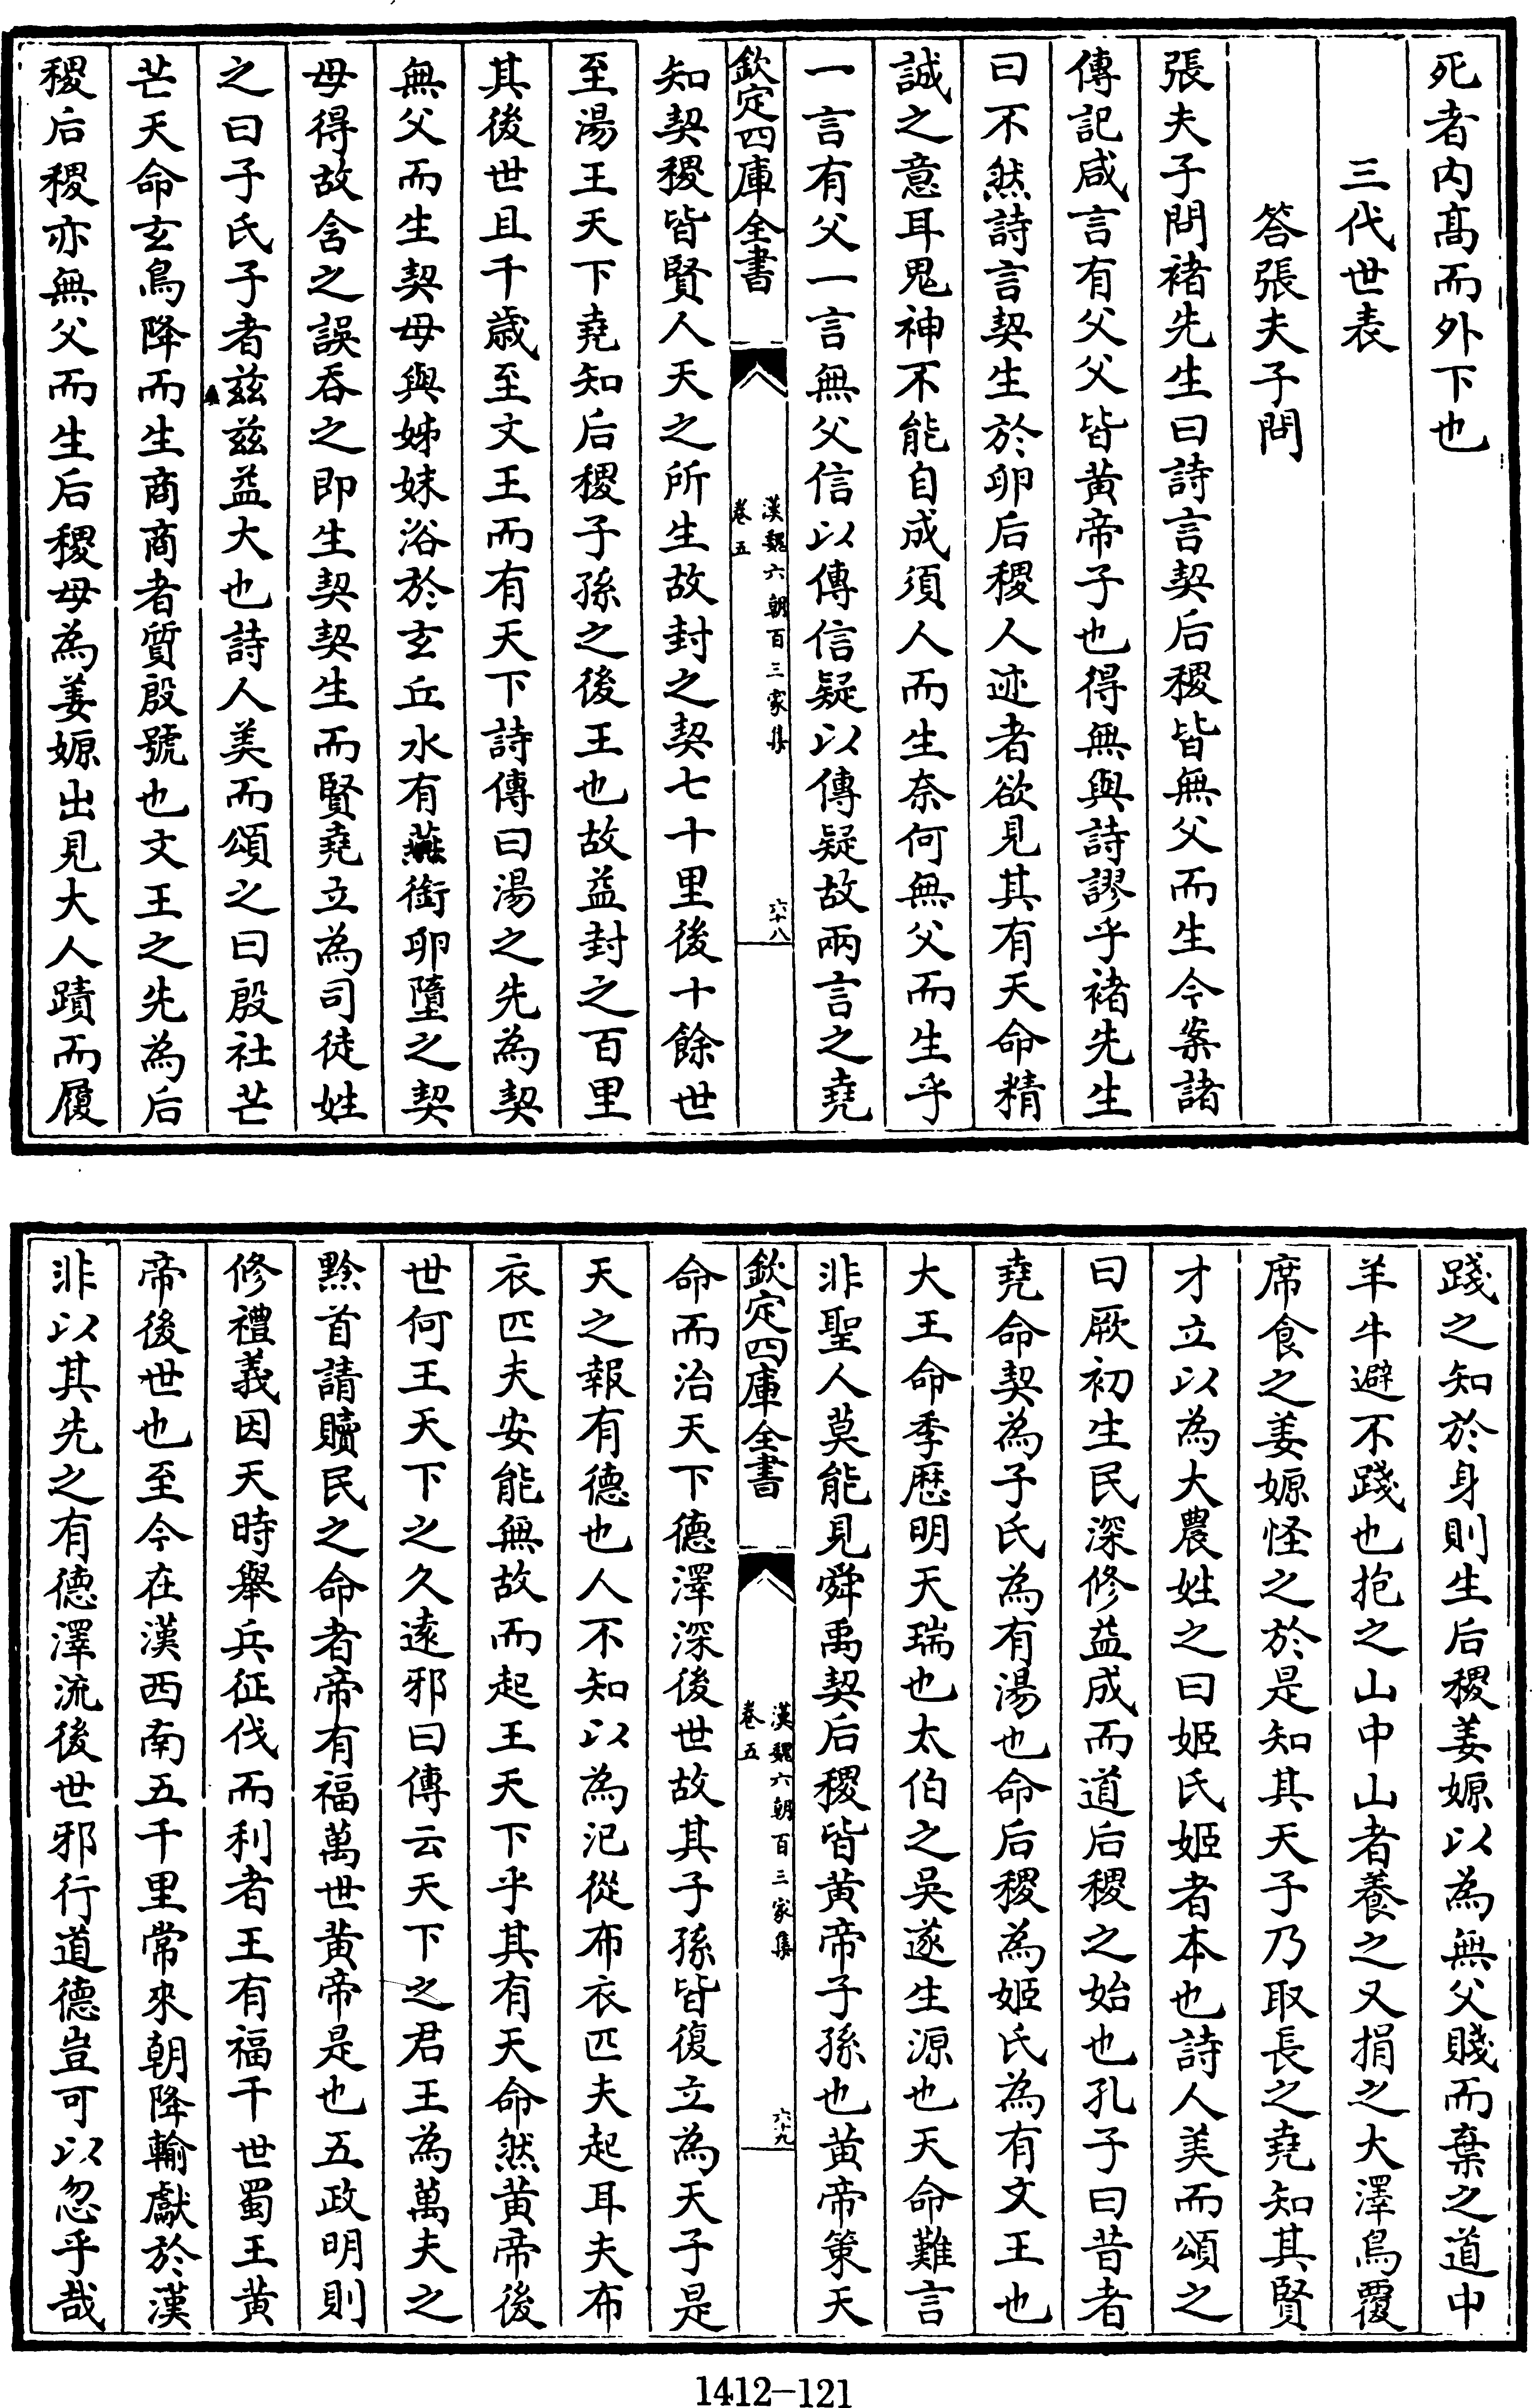 死者内髙而外下也
三代世表
答張夫子問
張夫子問禇先生曰詩言契后稷皆無父而生今案諸
傳記咸言有父父皆黄帝子也得無與詩謬乎禇先生
曰不然詩言契生於卵后稷人迹者欲見其有天命精
誠之意耳鬼神不能自成須人而生奈何無父而生乎
一言有父一言無父信以傳信疑以傳疑故兩言之堯
欽定四庫全書
漢魏六朝百三家集
卷五
六十八
知契稷皆賢人天之所生故封之契七十里後十餘世
至湯王天下堯知后稷子孫之後王也故益封之百里
其後世且千歲至文王而有天下詩傳曰湯之先為契
無父而生契母與姊妹浴於玄丘水有燕銜卵墮之契
母得故含之誤吞之即生契契生而賢堯立為司徒姓
之曰子氏子者兹兹益大也詩人美而頌之曰殷社芒
芒天命玄鳥降而生商商者質殷號也文王之先為后
稷后稷亦無父而生后稷母為姜嫄出見大人蹟而履
踐之知於身則生后稷姜嫄以為無父賤而棄之道中
羊牛避不踐也抱之山中山者養之又捐之大澤鳥覆
席食之姜嫄怪之於是知其天子乃取長之堯知其賢
才立以為大農姓之曰姬氏姬者本也詩人美而頌之
曰厥初生民深修益成而道后稷之始也孔子曰昔者
堯命契為子氏為有湯也命后稷為姬氏為有文王也
大王命季歴明天瑞也太伯之吳遂生源也天命難言
非聖人莫能見舜禹契后稷皆黄帝子孫也黄帝策天
欽定四庫全書
漢魏六朝百三家集
卷五
六十九
命而治天下德澤深後世故其子孫皆復立為天子是
天之報有德也人不知以為氾從布衣匹夫起耳夫布
衣匹夫安能無故而起王天下乎其有天命然黄帝後
世何王天下之久遠邪曰傳云天下之君王為萬夫之
黔首請贖民之命者帝有福萬世黄帝是也五政明則
修禮義因天時舉兵征伐而利者王有福千世蜀王黄
帝後世也至今在漢西南五千里常來朝降輸獻於漢
非以其先之有德澤流後世邪行道德豈可以忽乎哉
1412—121